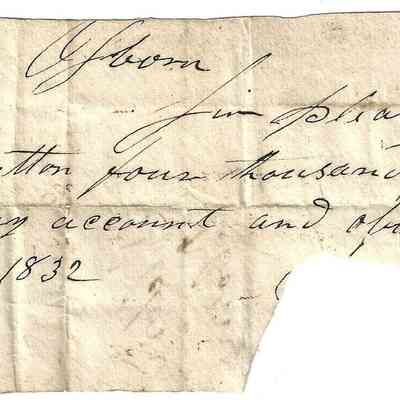 Osborn
Sir plea
tton four thousand
y account and ob
1832